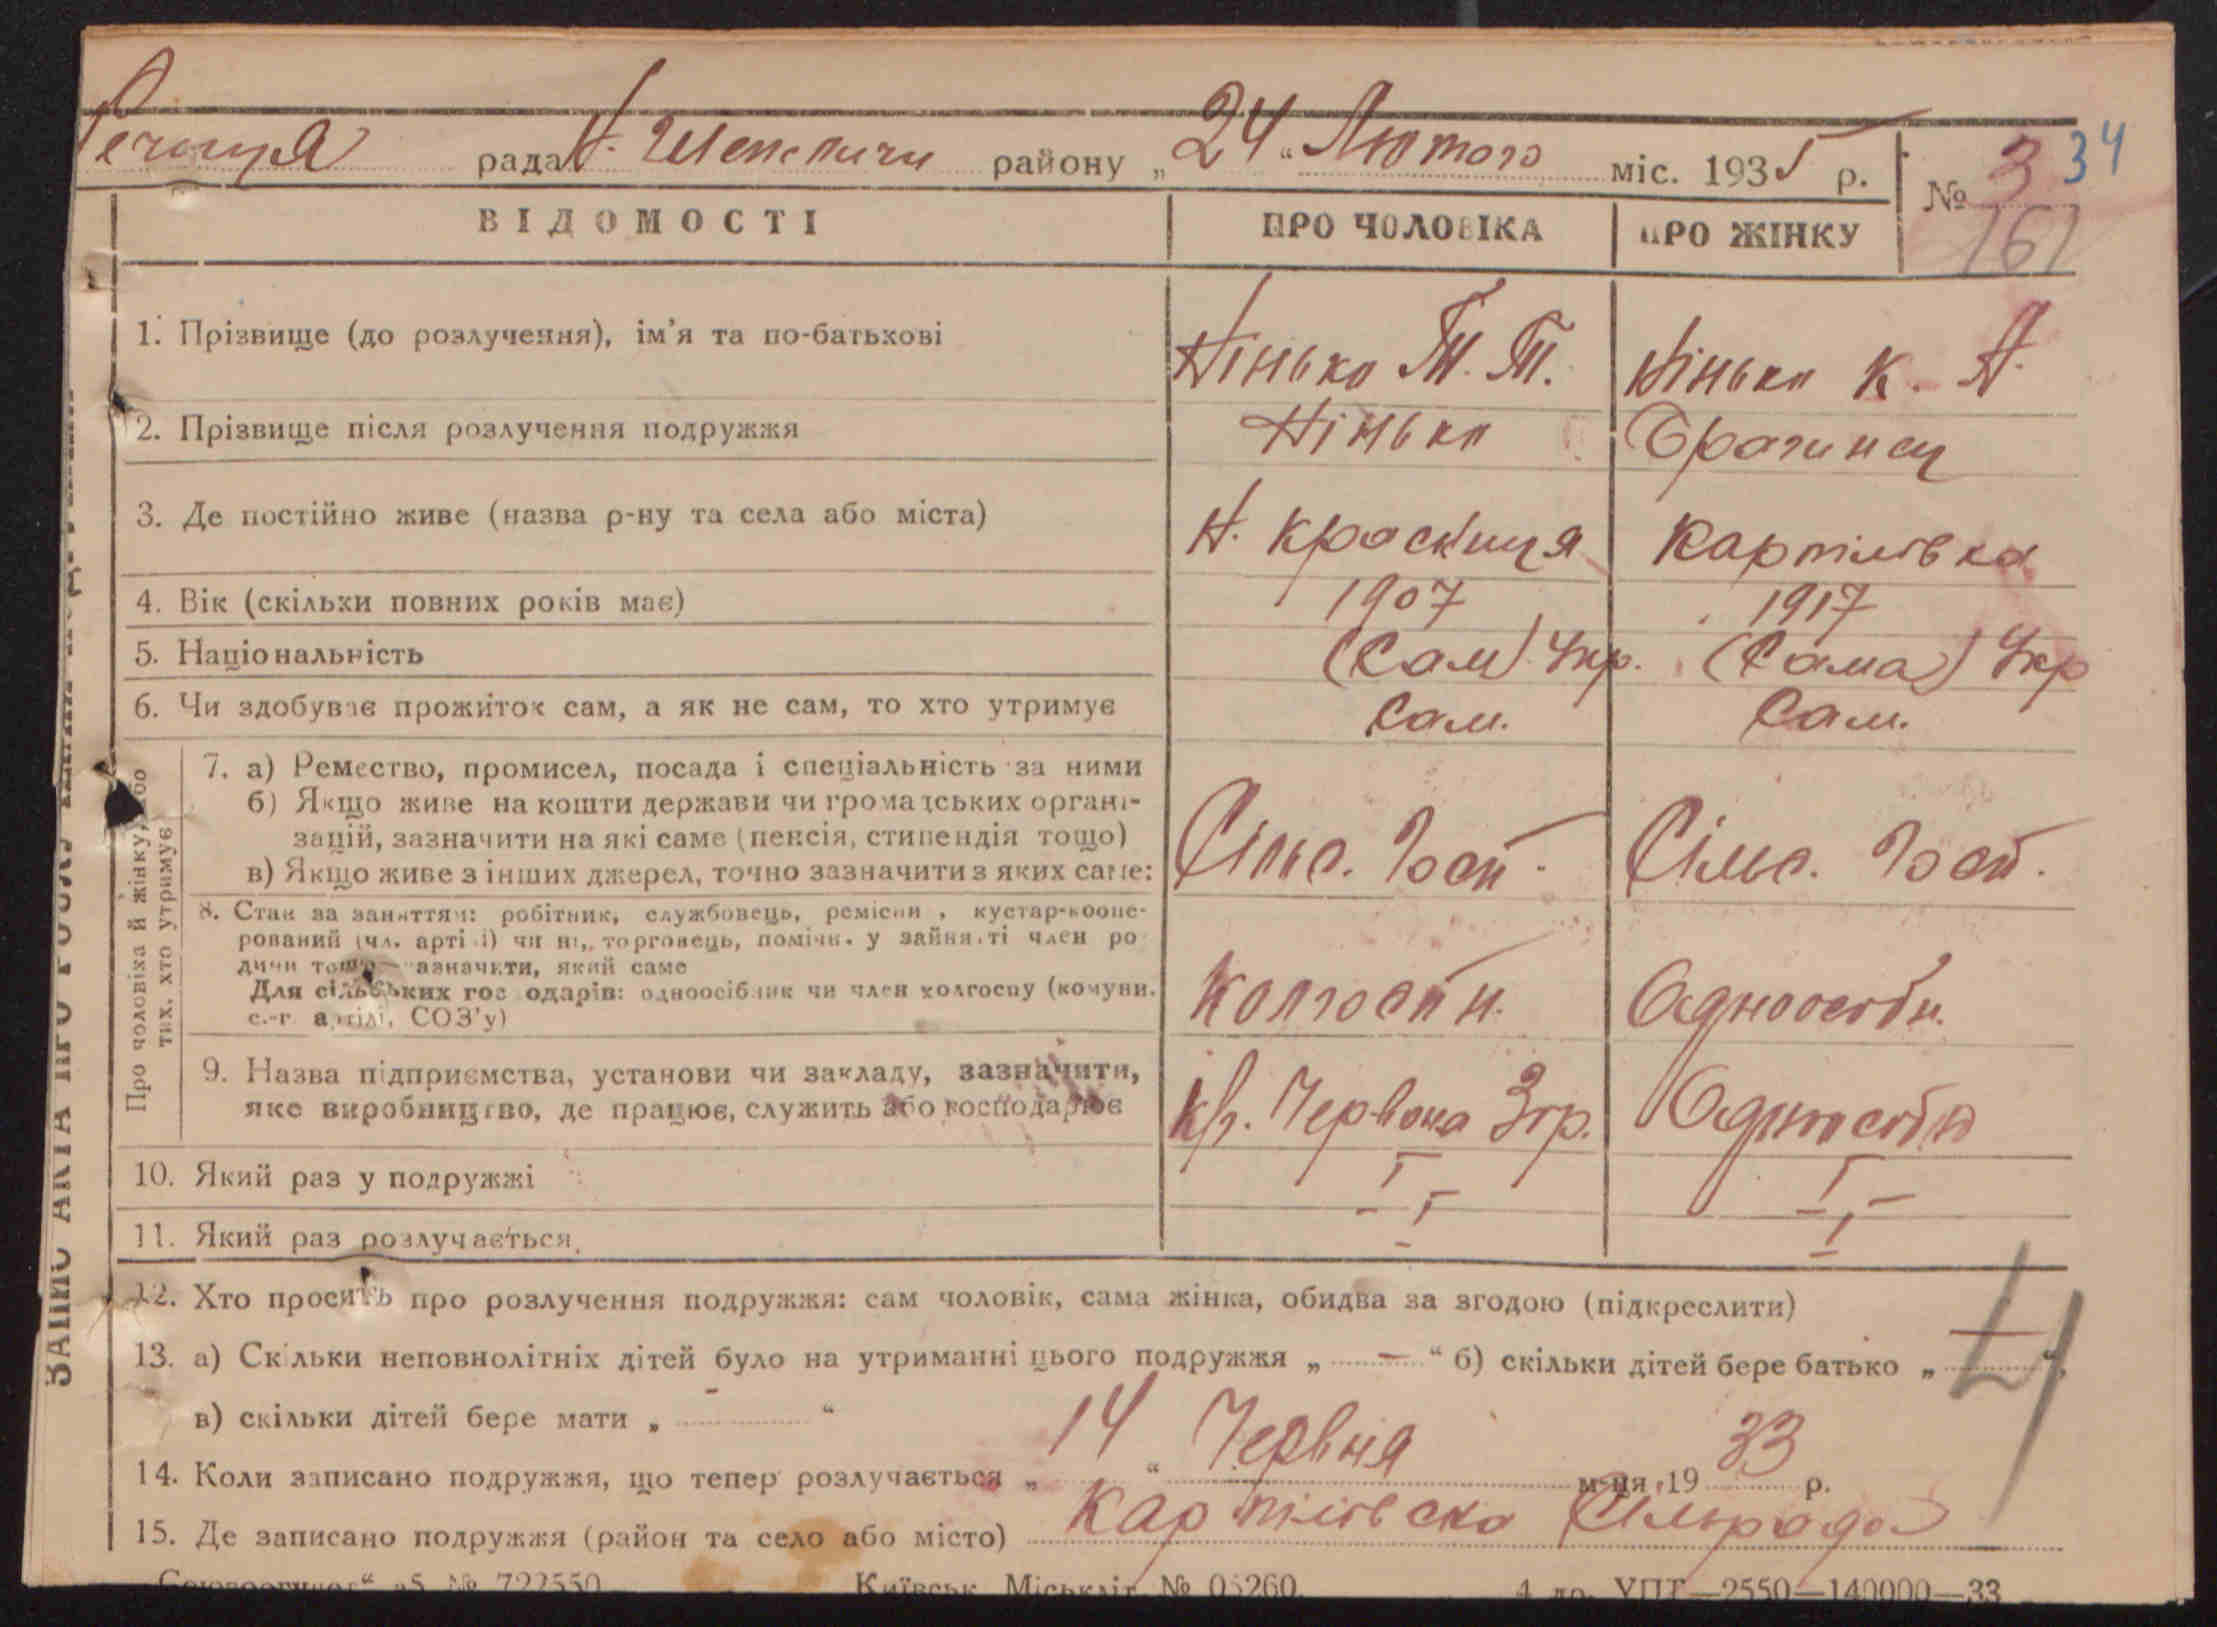 Речиця рада Н. Шепеличи району „24“ Лютого міс. 1935 р. № 3 34
161
ВІДОМОСТІ ПРО ЧОЛОВІКА ПРО ЖІНКУ
1. Прізвище (до розлучення), ім'я та по-батькові Нінько Т. Т. Нінько К. А.
2. Прізвище після розлучення подружжя Нінько
3. Де постійно живе (назва р-ну та села або міста) Н. Красниця Карпилівка
4. Вік (скільки повних років має) 1907 1917
5. Національність (Сам) Укр. (Сама) Укр
6. Чи здобуває прожиток сам, а як не сам, то хто утримує Сам. Сам.
Про чоловіка й жінку, або
тих, хто утримує
7. а) Ремество, промисел, посада і спеціальність за ними
б) Якщо живе на кошти держави чи громадських органі-
зацій, зазначити на які саме (пенсія, стипендія тощо)
в) Якщо живе з інших джерел, точно зазначити з яких саме: Сільс. Госп. Сільс. Госп.
8. Стан за заняттям: робітник, службовець, ремісни , кустар-коопе-
рований (чл. артілі) чи ні, торговець, помічн. у зайнятті член ро
дини тощо зазначити, який саме
Для сільських господарів: одноосібник чи член колгоспу (комуни.
с.-г. артілі, СОЗ'у) Колгоспн. Одноосібн.
9. Назва підприємства, установи чи закладу, зазначити,
яке виробництво, де працює, служить або господарює Червона Зір. Одноосібн
10. Який раз у подружжі I I
11. Який раз розлучається. I I
12. Хто просить про розлучення подружжя: сам чоловік, сама жінка, обидва за згодою (підкреслити)
13. а) Скільки неповнолітніх дітей було на утриманні цього подружжя „ — “ б) скільки дітей бере батько „ — “,
в) скільки дітей бере мати „ - “
14. Коли записано подружжя, що тепер розлучається „ 14 “ Червня м-ця 19 33 р.
15. Де записано подружжя (район та село або місто) Карпилівска Сільрада
№ 722550 Київськ. Міськліт № 05260. УПТ—2550—140000—33